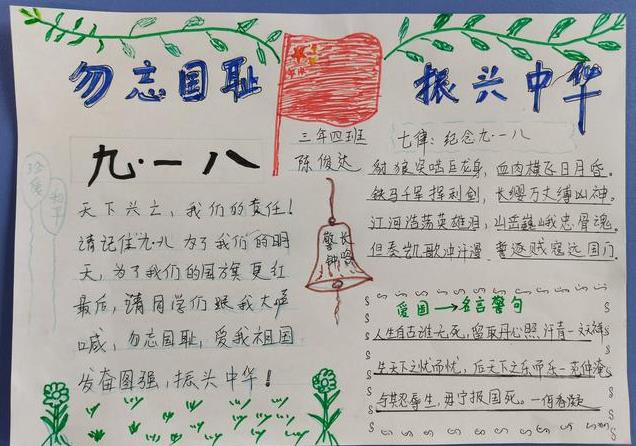 勿忘国耻
振兴中华
九·一八
三年四班
陈俊达
天下兴亡，我们的责任！
请记住九·八 为了我们的明
天，为了我们的国旗更红
最后，请同学们跟我大声
喊，勿忘国耻，爱我祖国
发奋图强，振兴中华！
珍爱
和平
警钟
长鸣
七律：纪念九·一八
豺狼突啮巨龙身，血肉横飞日月昏。
铁马千军挥利剑，长缨万丈缚凶神。
江河浩荡英雄泪，山岳巍峨忠骨魂。
但奏凯歌冲汗漫，誓逐贼寇远国门
爱国→名言警句
人生自古谁无死，留取丹心照汗青一文天祥
先天下之忧而忧，后天下之乐而乐一范仲淹
与其忍辱生，毋宁报国死。一何香凝